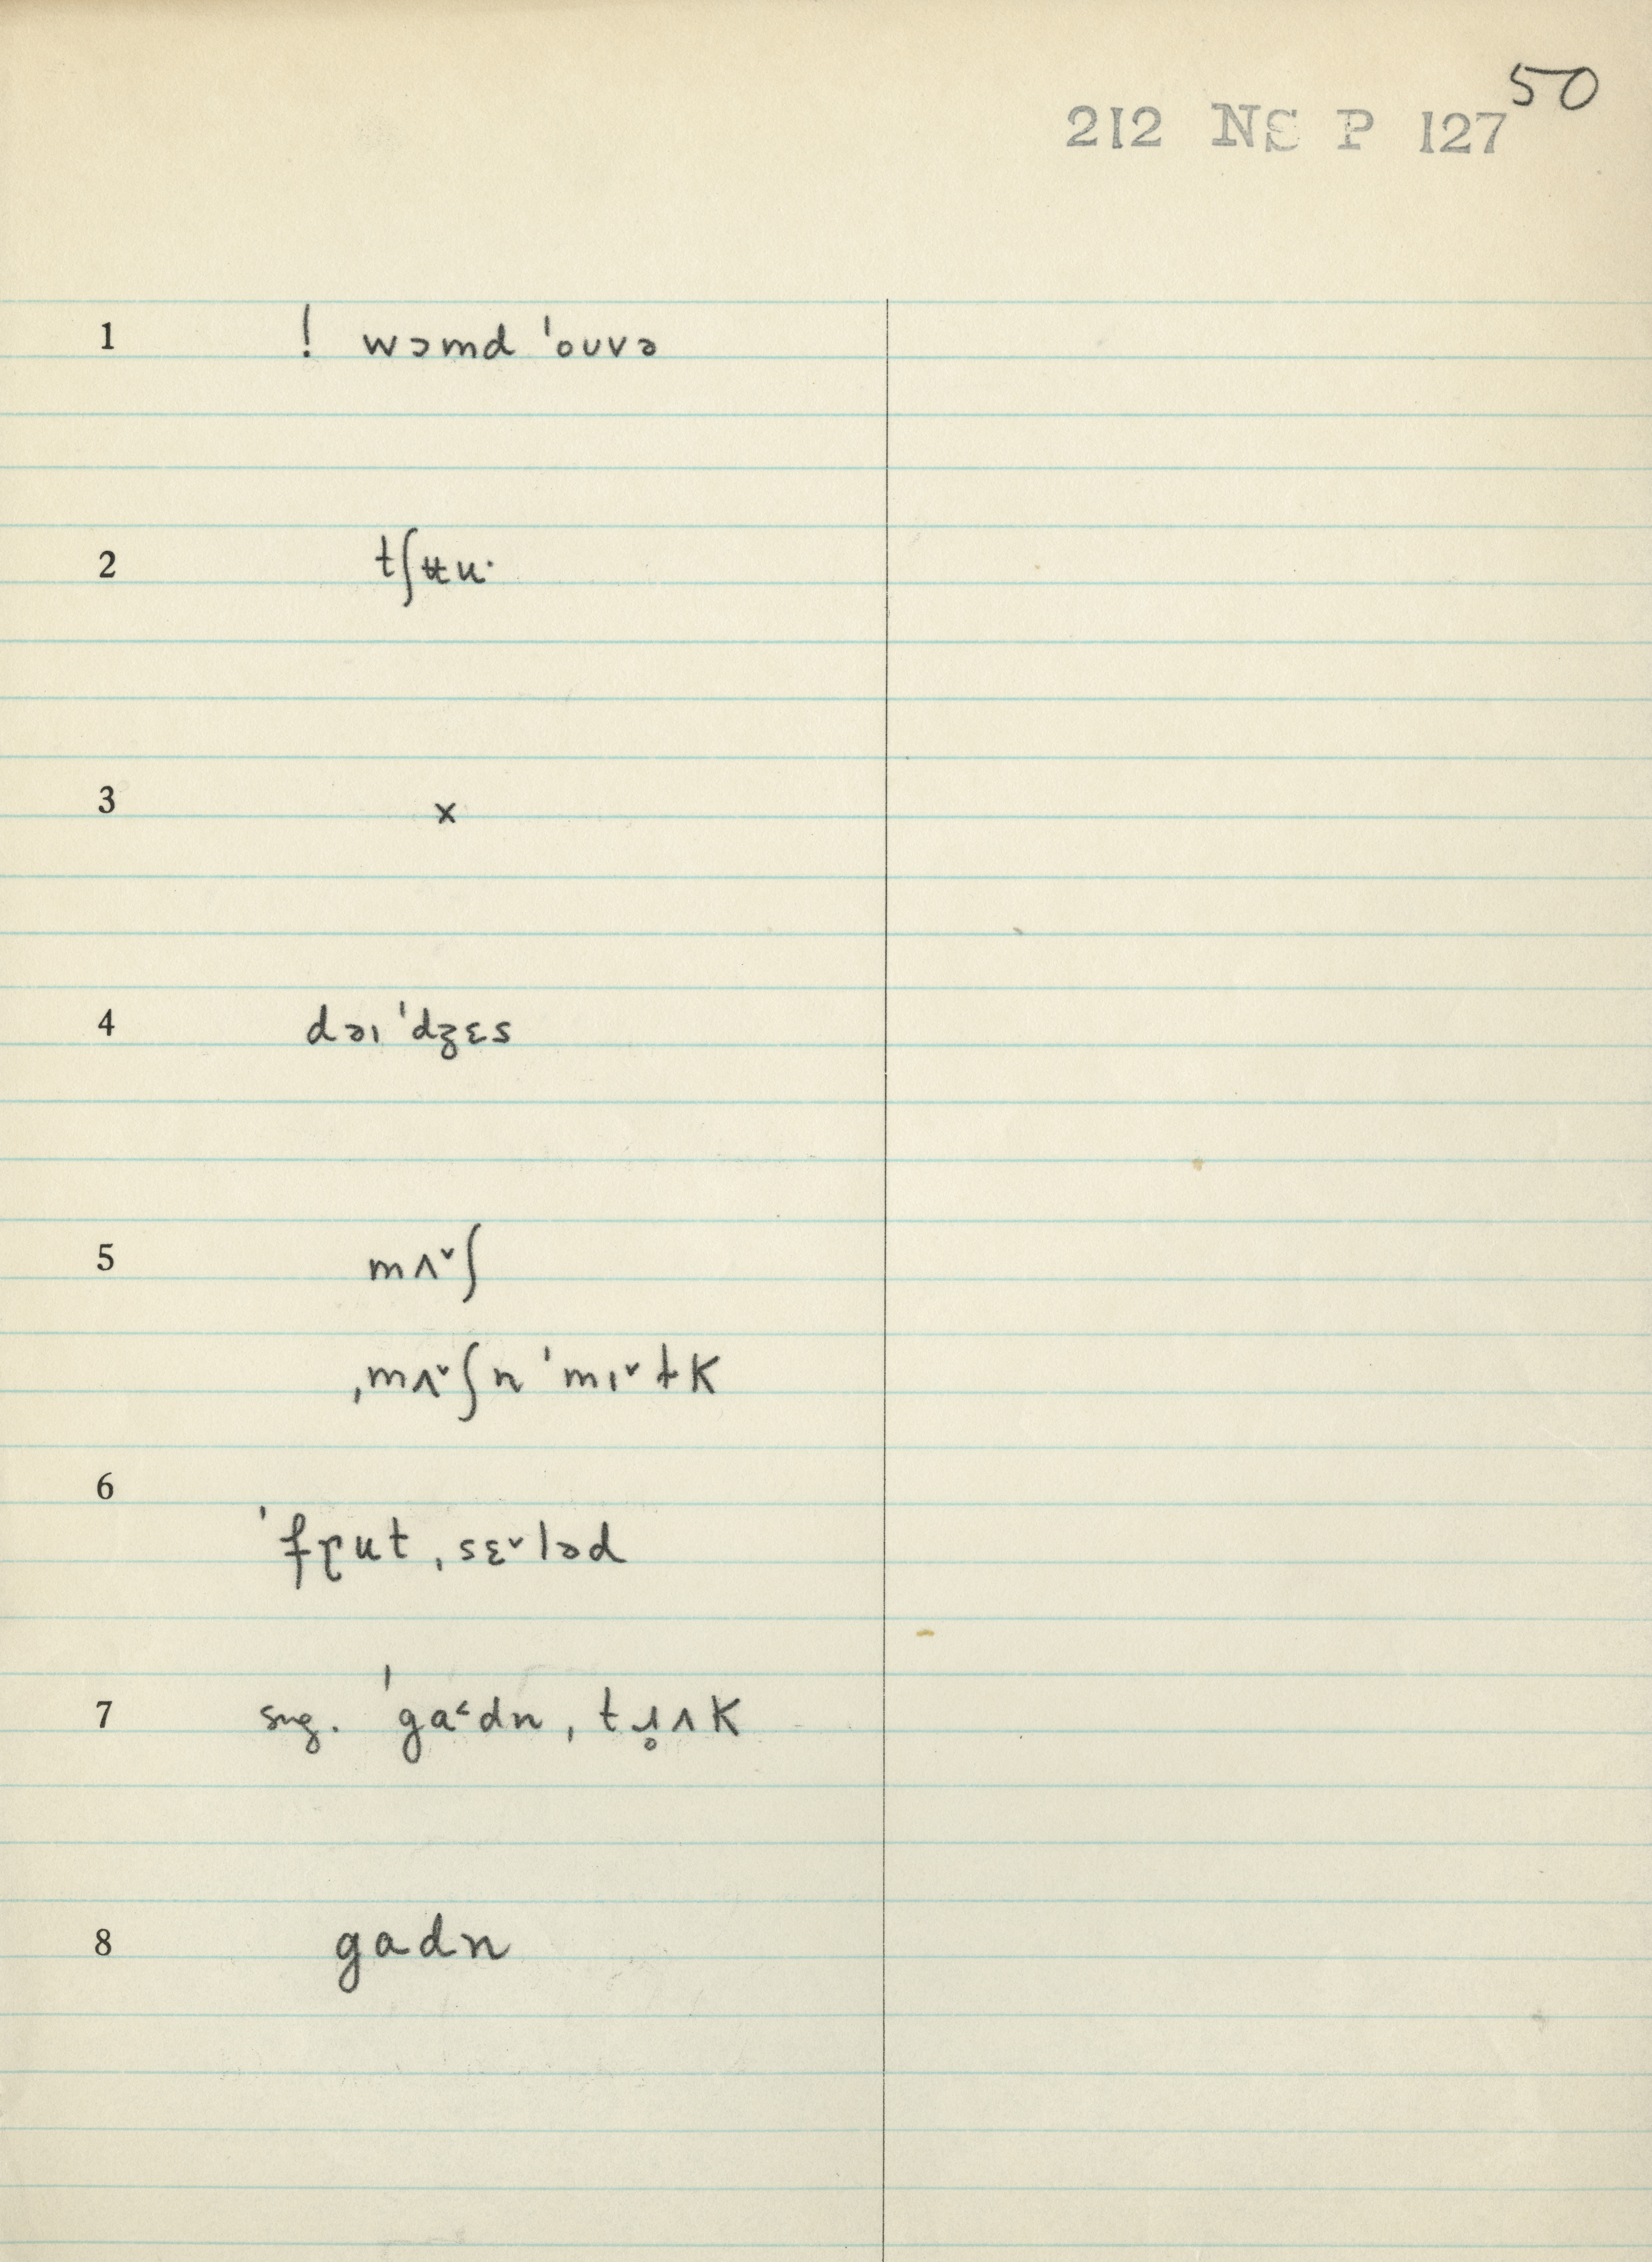 50
212 NS P 127
1 ! wɔmd ˈouvə
2 tʃʉu·
3 x
4 dəɪ ˈdʒɛs
5 mʌ˅ʃ
ˌmʌ˅ʃn ˈmɪ˅ɫK
6
ˈfɽut ˌsɛ˅ləd
7 sng. ˈga˂dn, tɹ̥ʌK
8 gadn